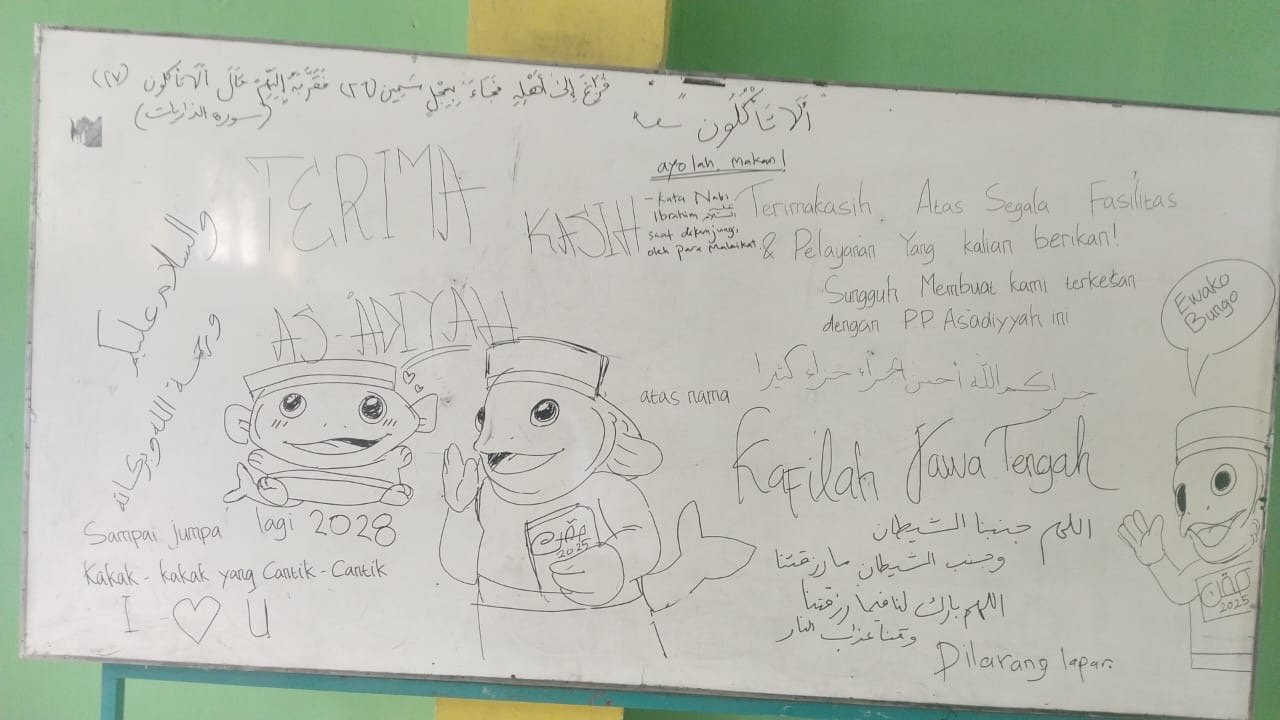 فَرَاغَ إِلَىٰ أَهْلِهِ فَجَاءَ بِعِجْلٍ سَمِينٍ (٢٦) فَقَرَّبَهُ إِلَيْهِمْ قَالَ أَلَا تَأْكُلُونَ (٢٧)
(سورة الذاريات)
أَلَا تَأْكُلُونَ
ayolah, makan!
- kata Nabi
Ibrahim عليه السلام
saat dikunjungi
oleh para malaikat.
TERIMA
KASIH
AS-ADIYAH
Terimakasih Atas Segala Fasilitas
& Pelayanan Yang kalian berikan!
Sungguh Membuat kami terkesan
dengan PP. As'adiyyah ini
جزاكم الله أحسن الجزاء جزاء كثيرا
atas nama
Kafilah Jawa Tengah
والسلام عليكم
ورحمة الله وبركاته
Sampai jumpa lagi 2028
Kakak - kakak yang Cantik - Cantik
I ♡ U
2025
Ewako
Bungo
2025
اللهم جنبنا الشيطان
وجنب الشيطان ما رزقتنا
اللهم بارك لنا فيما رزقتنا
وقنا عذاب النار
Dilarang lapar.